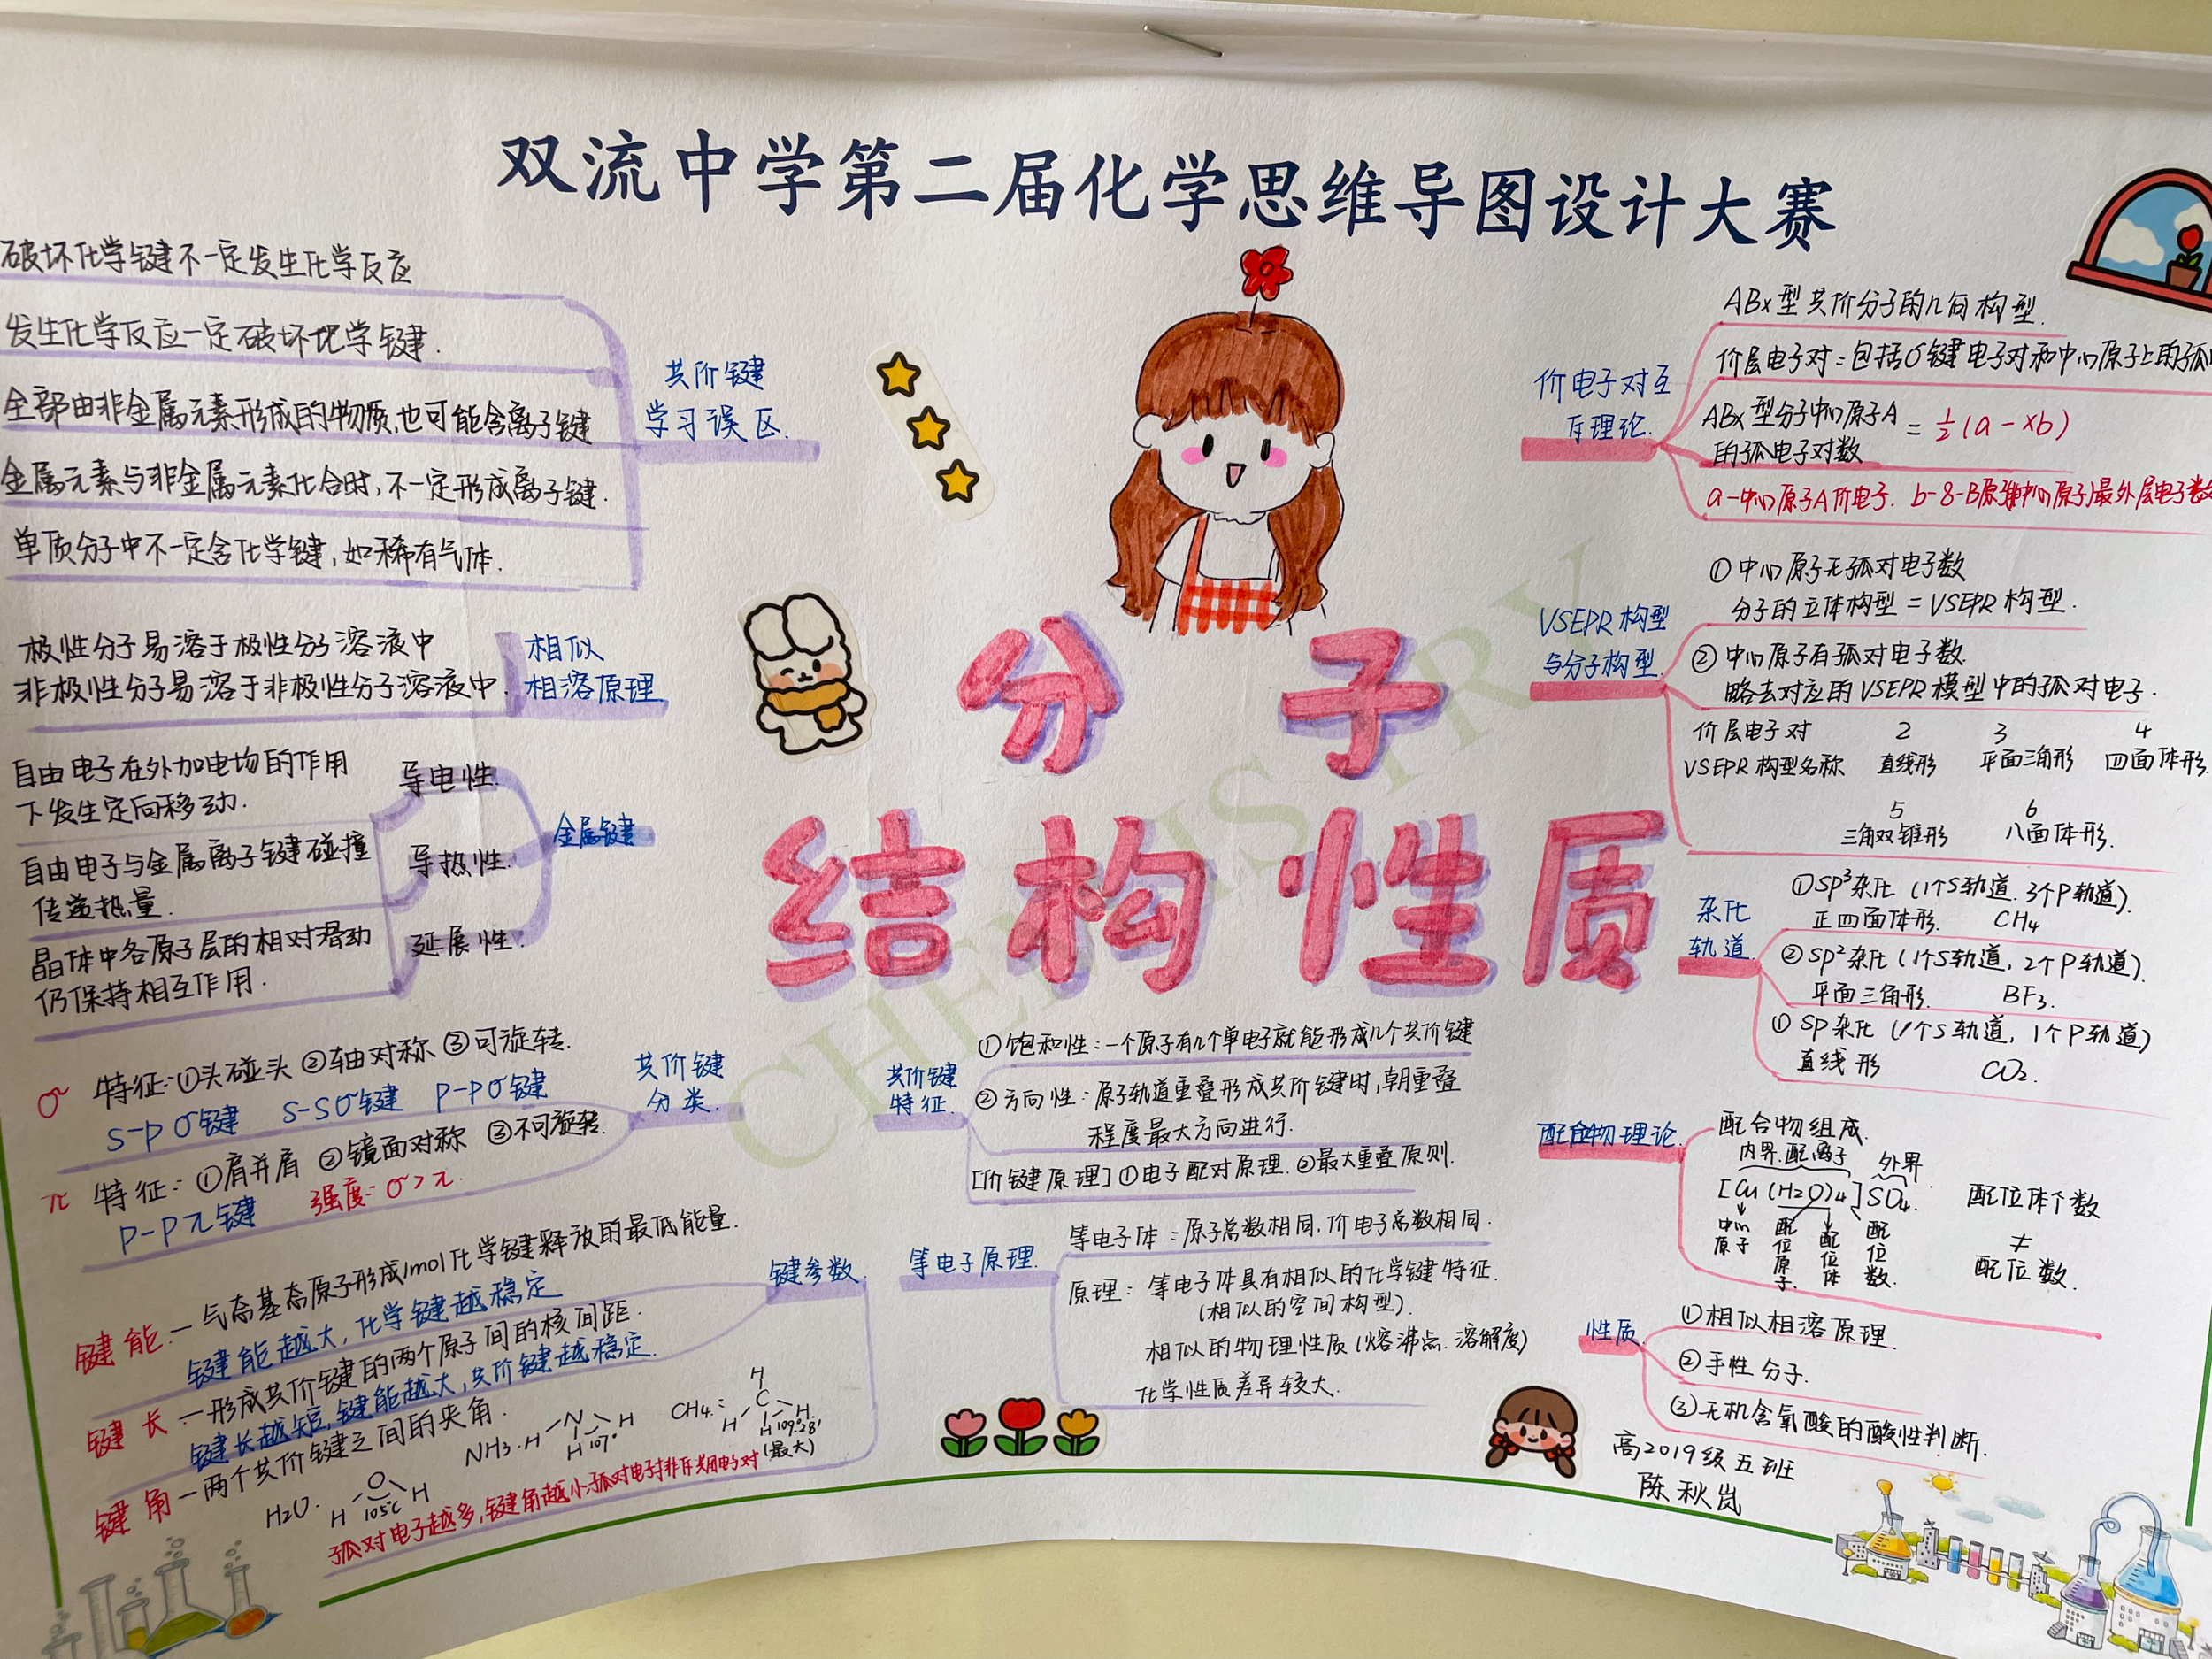 双流中学第二届化学思维导图设计大赛
破坏化学键不一定发生化学反应
发生化学反应一定破坏化学键.
全部由非金属元素形成的物质,也可能含离子键
金属元素与非金属元素化合时,不一定形成离子键.
单质分子中不一定含化学键,如稀有气体.
共价键
学习误区.
极性分子易溶于极性分子溶液中
非极性分子易溶于非极性分子溶液中.
相似
相溶原理
自由电子在外加电场的作用
下发生定向移动.
导电性.
自由电子与金属离子键碰撞
传递热量.
导热性.
晶体中各原子层的相对滑动
仍保持相互作用.
延展性.
金属键
σ 特征:①头碰头 ②轴对称 ③可旋转.
s-p σ键 s-s σ键 p-p σ键
π 特征:①肩并肩 ②镜面对称 ③不可旋转.
p-p π键 强度:σ>π.
共价键
分类.
键能 — 气态基态原子形成1mol化学键释放的最低能量.
键能越大,化学键越稳定
键长 — 形成共价键的两个原子间的核间距.
键长越短,键能越大,共价键越稳定.
键角 — 两个共价键之间的夹角.
键参数.
H2O. H O H 105℃
NH3. H N H H 107°
CH4: H C H H H 109°28′
(最大)
孤对电子越多,键角越小:孤对电子排斥共用电子对
分 子
结构性质
CHEMISTRY
共价键
特征.
①饱和性:一个原子有几个单电子就能形成几个共价键
②方向性:原子轨道重叠形成共价键时,朝重叠
程度最大方向进行.
[价键原理]①电子配对原理.②最大重叠原则.
等电子原理.
等电子体:原子总数相同,价电子总数相同.
原理:等电子体具有相似的化学键特征.
(相似的空间构型).
相似的物理性质(熔沸点.溶解度)
化学性质差异较大.
价电子对互
斥理论.
ABx型共价分子的几何构型.
价层电子对:包括σ键电子对和中心原子上的孤
ABx型分子中心原子A
的孤电子对数
= ½(a-xb)
a-中心原子A价电子. b-8-B原子(非中心原子)最外层电子数
VSEPR构型
与分子构型.
①中心原子无孤对电子数
分子的立体构型=VSEPR构型.
②中心原子有孤对电子数.
略去对应的VSEPR模型中的孤对电子.
价层电子对 2 3 4
VSEPR构型名称 直线形 平面三角形 四面体形.
5 6
三角双锥形 八面体形.
杂化
轨道.
①sp³杂化(1个s轨道.3个p轨道).
正四面体形. CH4
②sp²杂化(1个s轨道,2个p轨道).
平面三角形. BF3.
①sp杂化(1个s轨道,1个p轨道)
直线形 CO2.
配合物理论.
配合物组成.
内界.配离子 外界
[Cu(H2O)4]SO4.
中心原子
配位原子.
配位体
配位数.
配位体个数
≠
配位数.
性质.
①相似相溶原理.
②手性分子.
③无机含氧酸的酸性判断.
高2019级五班
陈秋岚